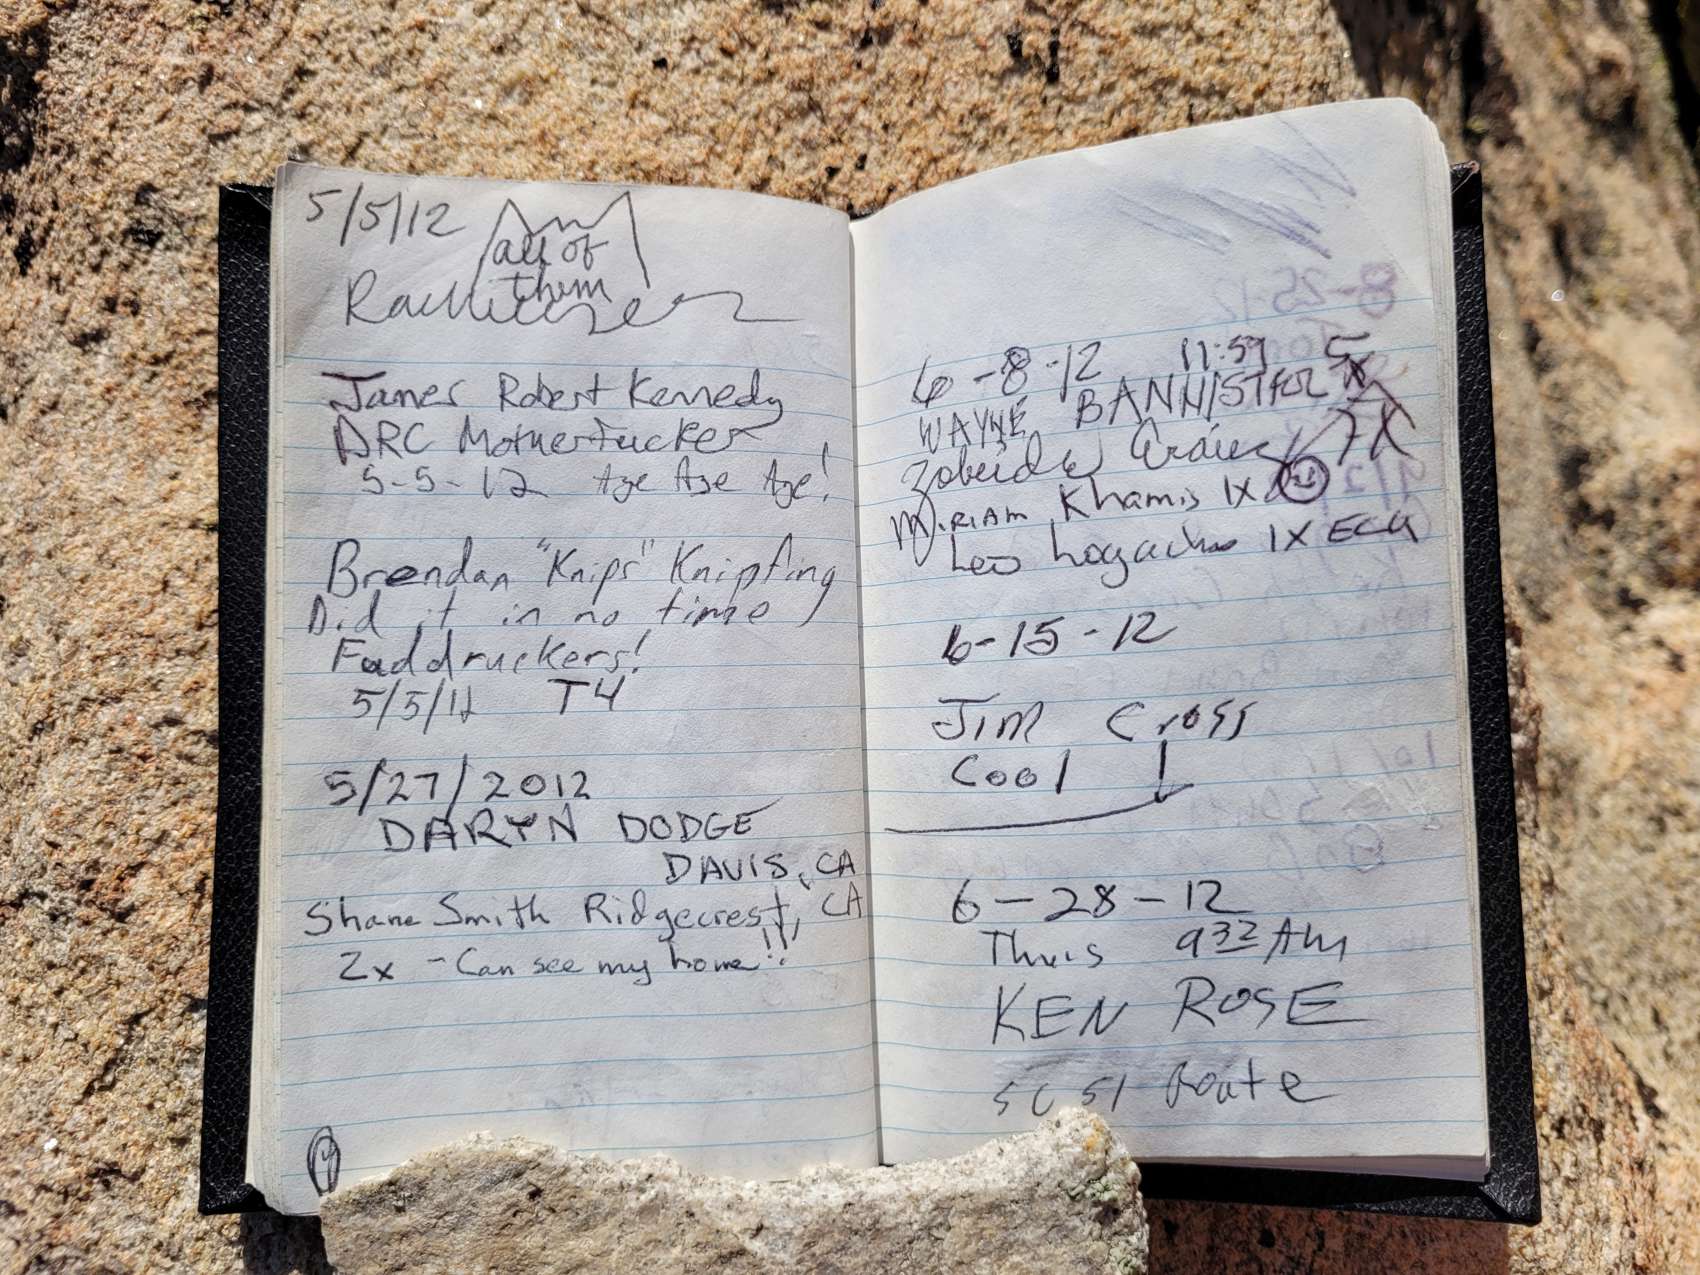 5/5/12
all of
them
James Robert Kennedy
DRC Motherfucker
5-5-12 Aye Aye Aye!
Brendan "Knips" Knipfing
Did it in no time
Faddruckers!
5/5/12 T4
5/27/2012
DARYN DODGE
DAVIS, CA
Shane Smith Ridgecrest, CA
2x - Can see my home!!
6-8-12 11:59 5x
WAYNE BANNISTER
Zobeida
7X
Miriam Khamis 1X
Leo 1X
6-15-12
Jim Cross
Cool
6-28-12
Thurs 9 32 AM
KEN ROSE
Route